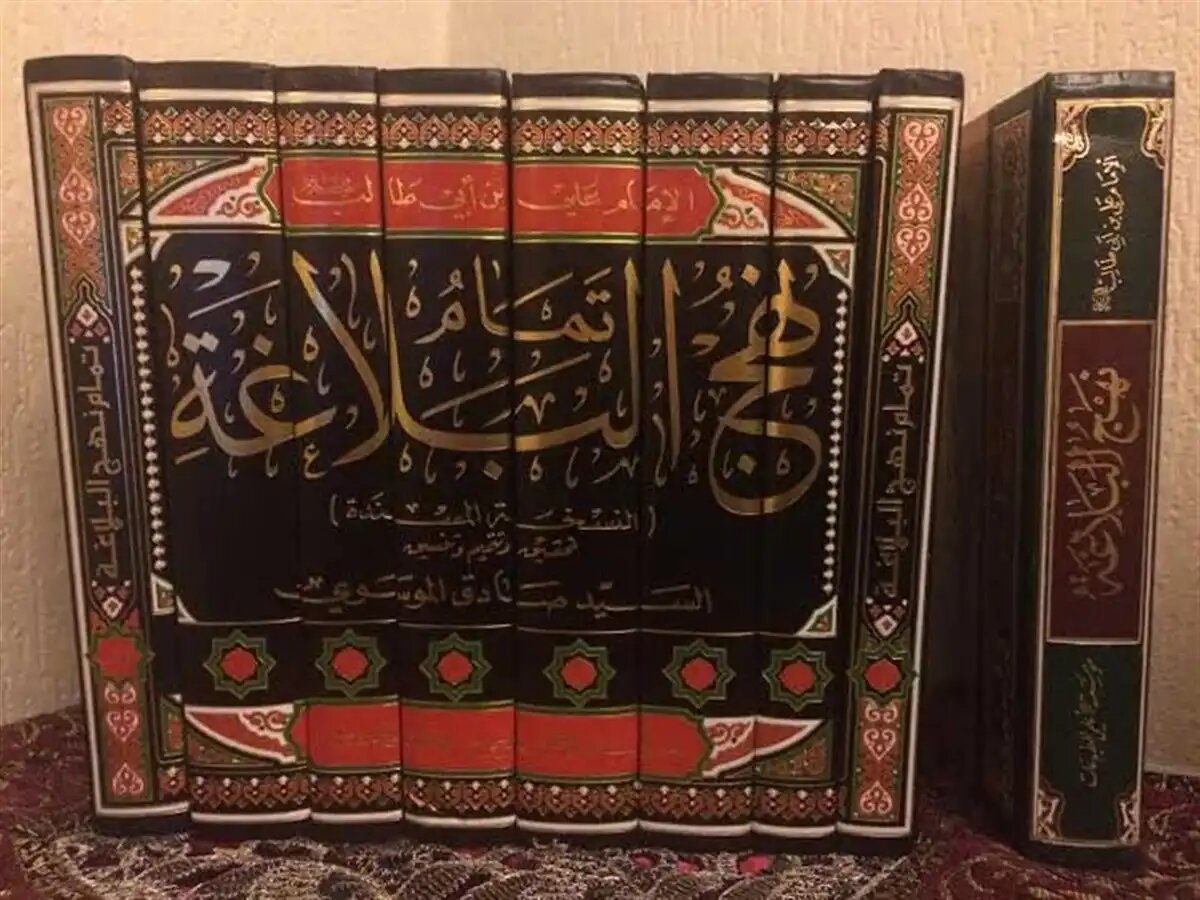 الإمام علي بن أبي طالب
تمام
نهج البلاغة
(النسخة المسندة)
تحقيق وتتميم وتنسيق
السيد صادق الموسوي
تمام نهج البلاغة
تمام نهج البلاغة
الإمام علي بن أبي طالب
نهج البلاغة